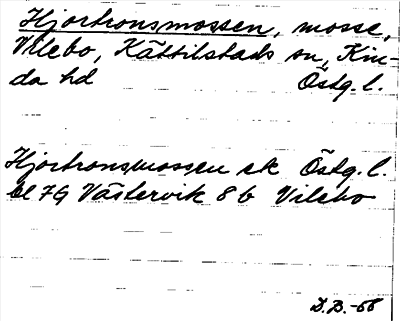 Hjortronsmossen, mosse,
Vilebo, Kättilstads sn, Kin-
da hd Östg. l.
Hjortronsmossen ek Östg. l.
bl 7G Västervik 8 b Vilebo
D.B.-68